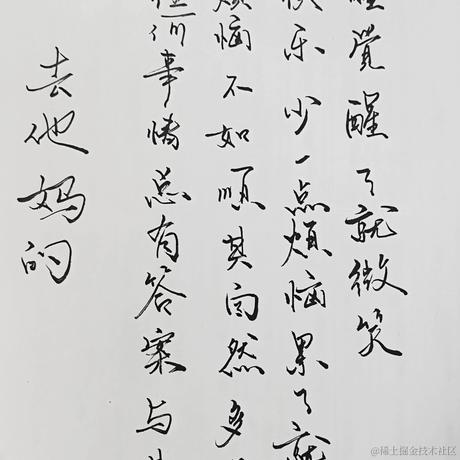 覺醒了就微笑
乐少一点烦恼累了就
烦恼不如顺其自然多
何事情总有答案与
去他妈的
@稀土掘金技术社区